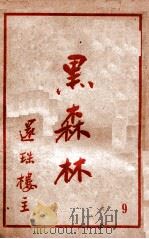 黑森林
還珠樓主
9